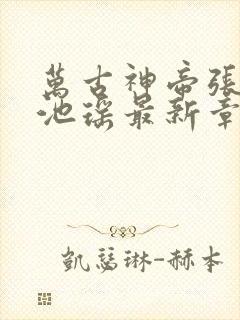 萬古神帝張
池瑤最新章
凱瑟琳-赫本